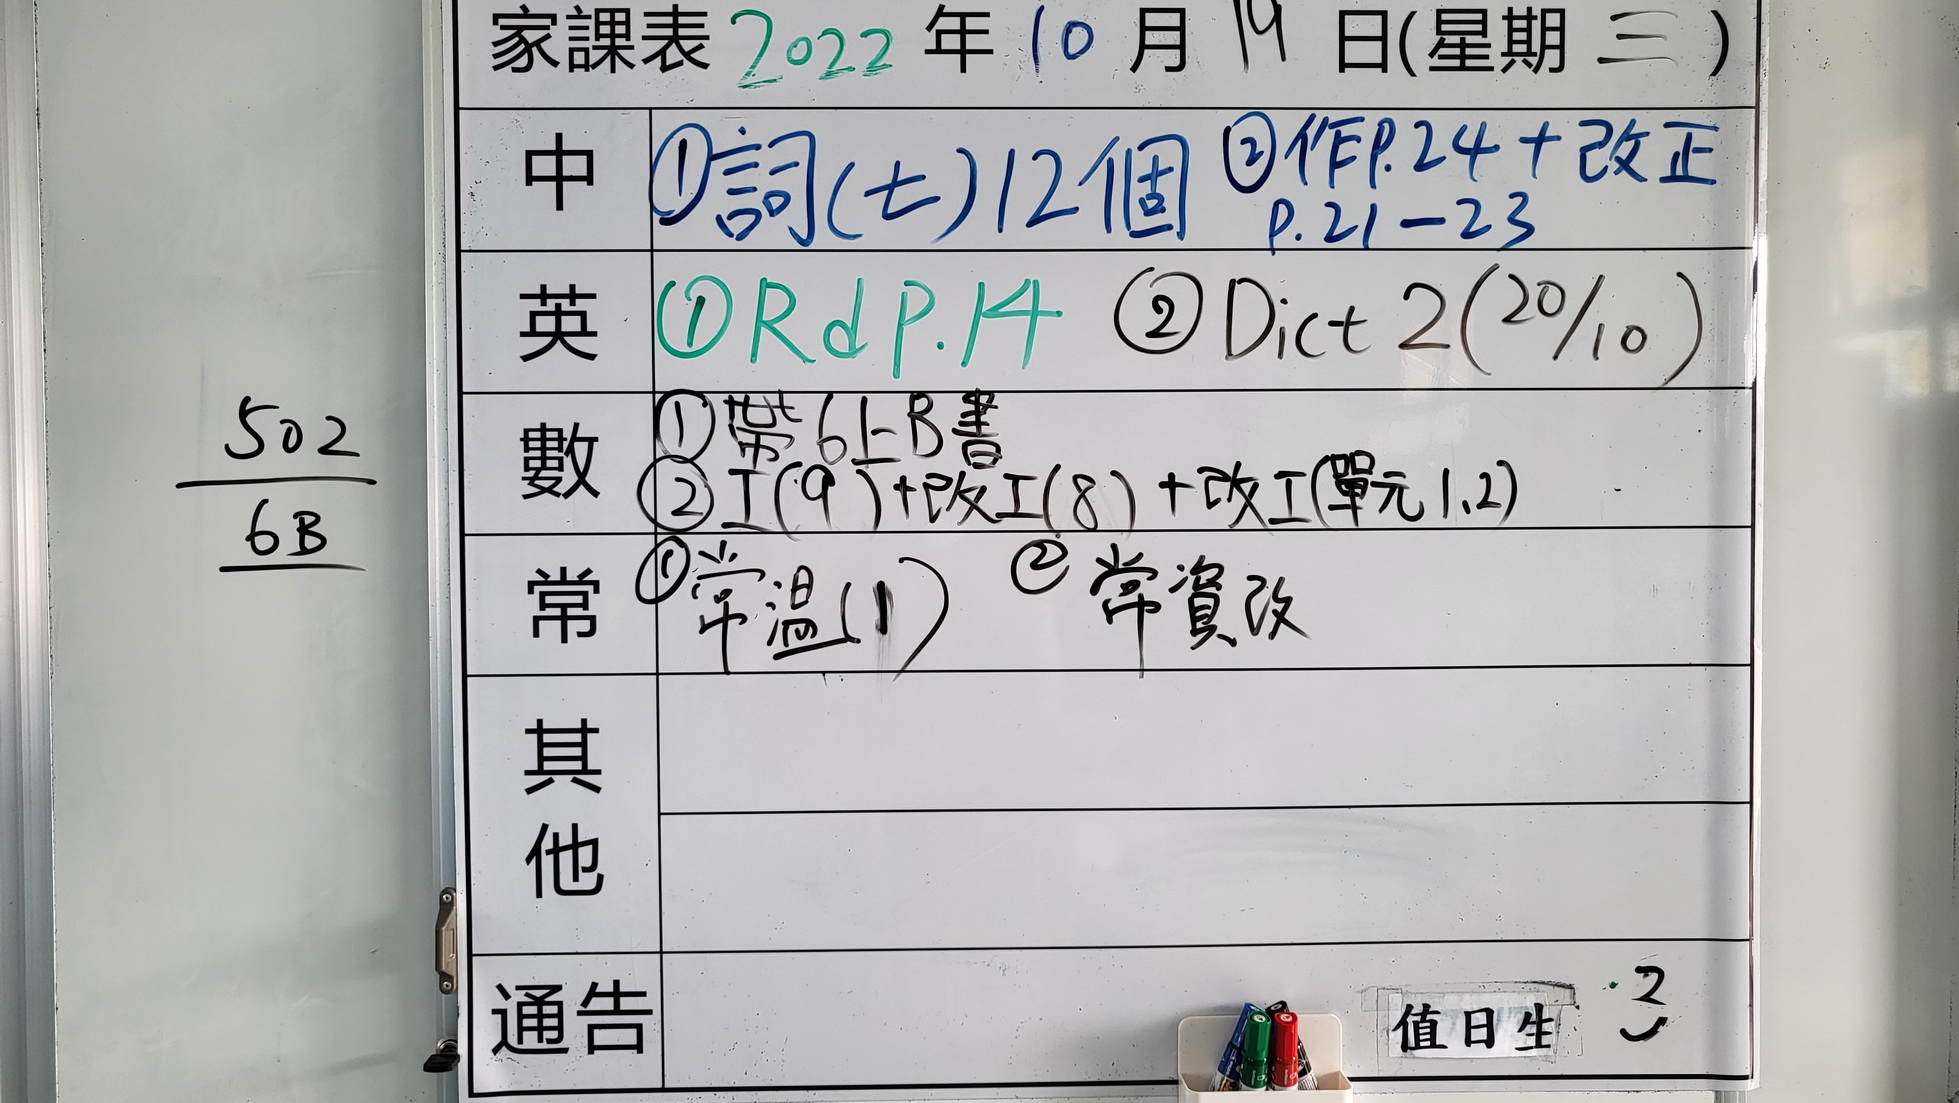 家課表 2022 年 10 月 19 日(星期 三)
中 ①詞(七)12個 ②作P.24+改正
P.21-23
英 ①Rd P.14 ②Dict 2(20/10)
數 ①帶6上B書
②工(9)+改工(8)+改工(單元1.2)
常 ①常溫(1) ②常資改
其他
通告
值日生 2
502
6B